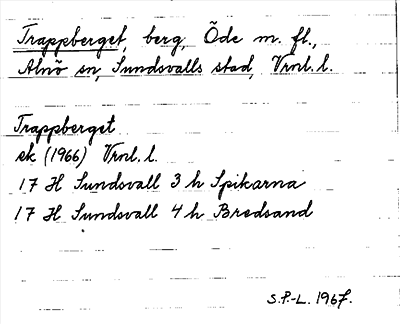 Trappberget, berg, Öde m. fl.,
Alnö sn, Sundsvalls stad, Vrnl. l.
Trappberget
ek (1966) Vrnl. l.
17 H Sundsvall 3 h Spikarna
17 H Sundsvall 4 h Bredsand
S.P.-L. 1967.